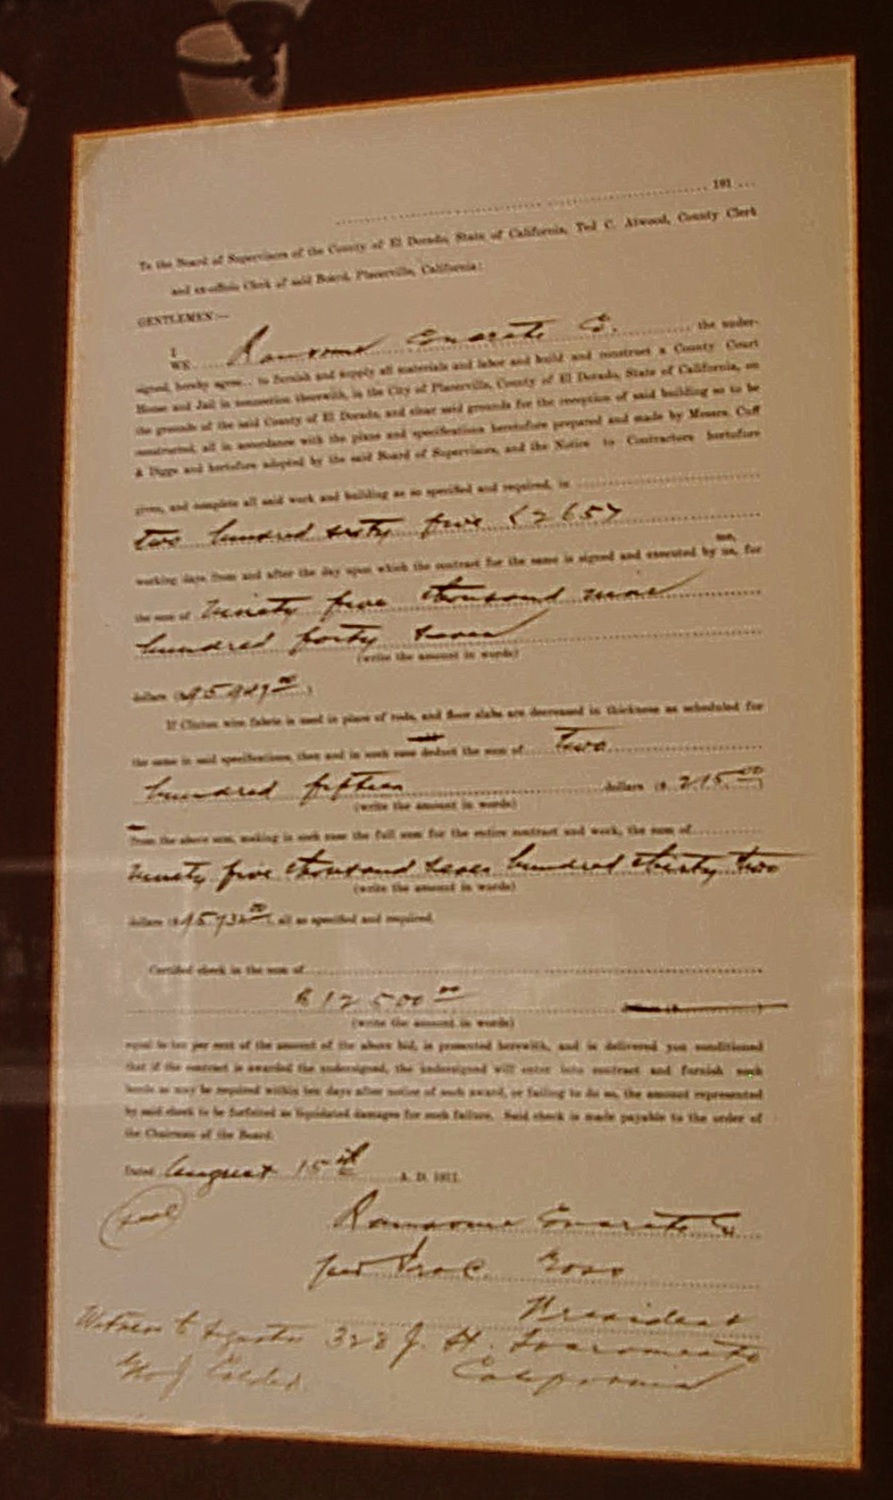 191 ...
To the Board of Supervisors of the County of El Dorado, State of California, Ted C. Atwood, County Clerk
and ex-officio Clerk of said Board, Placerville, California:
GENTLEMEN:—
I
WE Ransome Concrete Co. the under-
signed, hereby agree.. to furnish and supply all materials and labor and build and construct a County Court
House and Jail in connection therewith, in the City of Placerville, County of El Dorado, State of California, on
the grounds of the said County of El Dorado, and clear said grounds for the reception of said building so to be
constructed, all in accordance with the plans and specifications heretofore prepared and made by Messrs. Cuff
& Diggs and hertofore adopted by the said Board of Supervisors, and the Notice to Contractors hertofore
given, and complete all said work and building as so specified and required, in
two hundred sixty five (265)
me,
working days from and after the day upon which the contract for the same is signed and executed by us, for
the sum of Ninety five thousand nine
hundred forty seven
(write the amount in words)
dollars ($95947.00)
If Clinton wire fabric is used in place of rods, and floor slabs are decreased in thickness as scheduled for
the same in said specifications, then and in such case deduct the sum of two
hundred fifteen dollars ($ 215.00)
(write the amount in words)
from the above sum, making in such case the full sum for the entire contract and work, the sum of
Ninety five thousand seven hundred thirty two
(write the amount in words)
dollars ($95732.00), all as specified and required.
Certified check in the sum of
$12500.00
(write the amount in words)
equal to ten per cent of the amount of the above bid, is presented herewith, and is delivered you conditioned
that if the contract is awarded the undersigned, the undersigned will enter into contract and furnish such
bonds as may be required within ten days after notice of such award, or failing to do so, the amount represented
by said check to be forfeited as liquidated damages for such failure. Said check is made payable to the order of
the Chairman of the Board.
Dated August 15th A. D. 1911.
(seal) Ransome Concrete Co
per
President
Witness to Signature 328 J. St. Sacramento
California